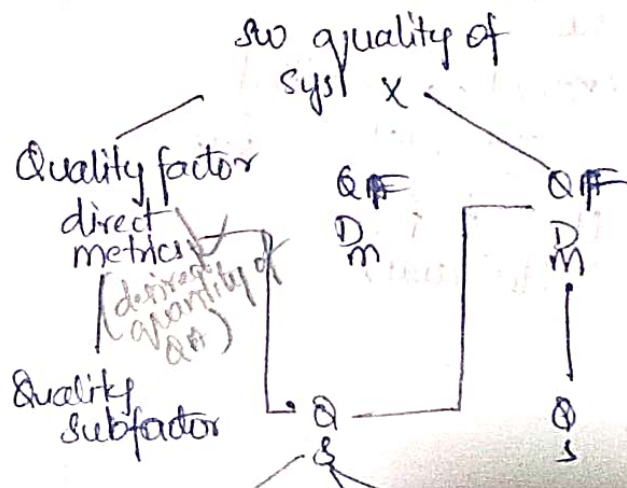 sw quality of
sys X
Quality factor
direct
metrics
(desired
quantity of
QA)
QF
D
m
QF
D
m
Quality
subfactor
Q
S
Q
S